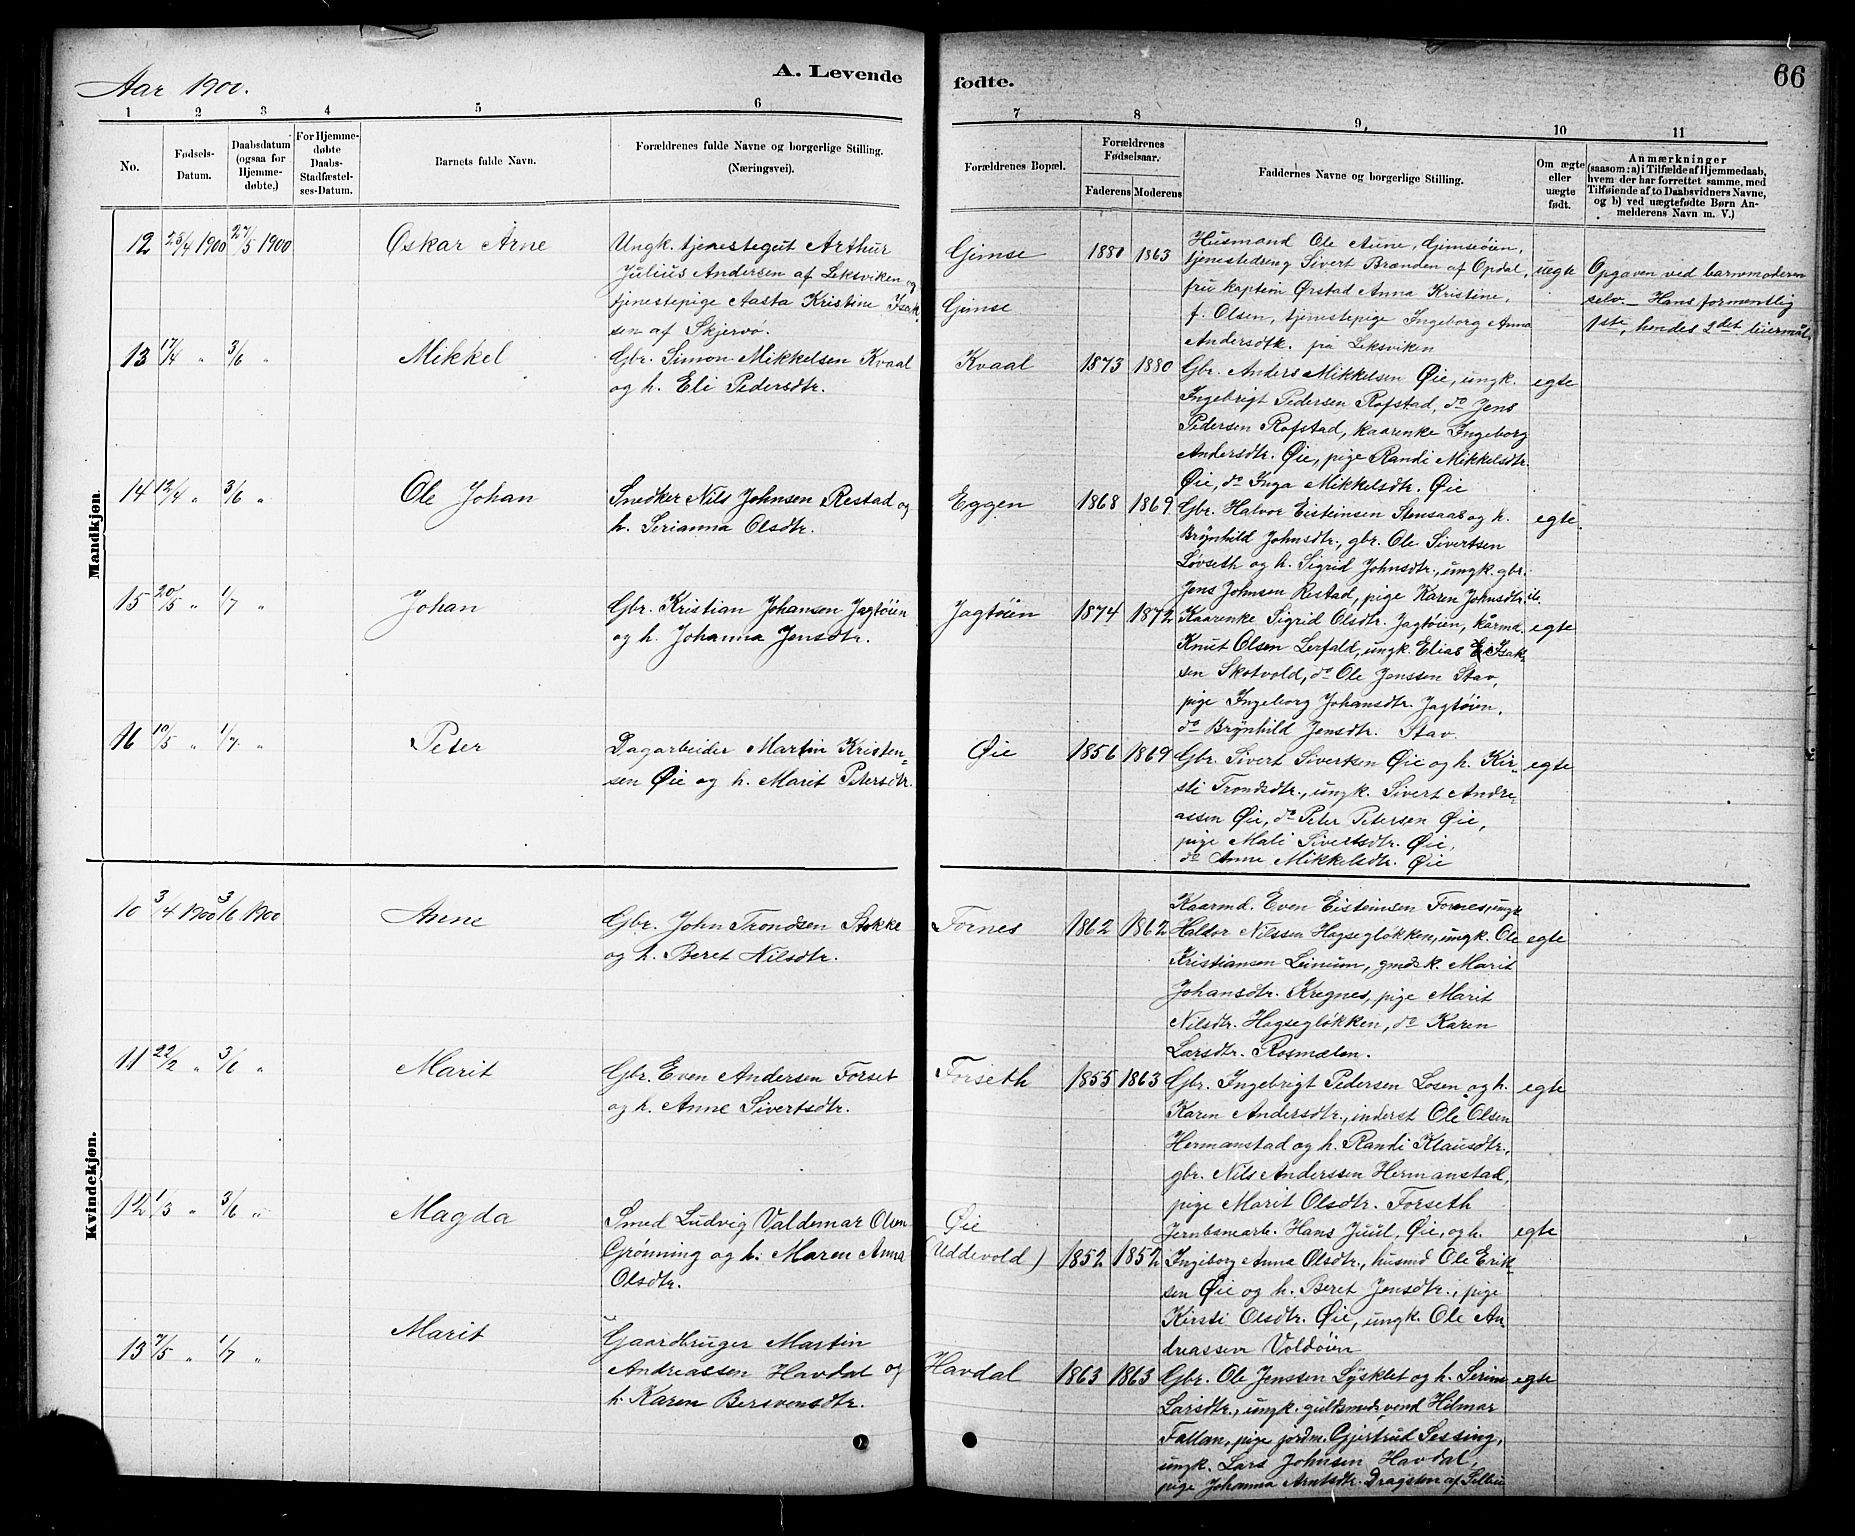 Aar 1900.
A. Levende
fødte.
66
1
2
3
4
5
6
7
8
9.
10
11
No.
Fødsels-
Datum.
Daabsdatum
(ogsaa for
Hjemme-
døbte.)
For Hjemme-
døbte
Daabs-
Stadfæstel-
ses-Datum.
Barnets fulde Navn.
Forældrenes fulde Navne og borgerlige Stilling.
(Næringsvei).
Forældrenes Bopæl.
Forældrenes
Fødselsaar.
Faderens
Moderens
Faddernes Navne og borgerlige Stilling.
Om ægte
eller
uægte
født.
Anmærkninger
(saasom: a) i Tilfælde af Hjemmedaab,
hvem der har forrettet samme, med
Tilføiende af to Daabsvidners Navne,
og b) ved uægtefødte Børn An-
melderens Navn m. V.)
Mandkjøn.
12 23/4 1900 27/5 1900 Oskar Arne
Ungk. tjenestegut Arthur
Julius Andersen af Leksviken og
tjenestepige Aasta Kristine Isak-
sen af Skjervø.
Gimse
Gimse
1880 1863
Husmand Ole Aune, Gimseøien,
tjenestedreng Sivert Brænden af Opdal,
fru kaptein Ørstad Anna Kristine,
f. Olsen, tjenestepige Ingeborg Anna
Andersdtr. på Leksviken
uegte
Opgaven ved barnemoderen
selv. – Hans formentlig
1ste, hendes 2det leiermål.
13 17/4 " 3/6 " Mikkel
Gbr. Simon Mikkelsen Kvaal
og h. Eli Pedersdtr.
Kvaal 1873 1880
Gbr. Anders Mikkelsen Øie, ungk.
Ingebrigt Pedersen Rofstad, do Jens
Pedersen Rofstad, kaarenke Ingeborg
Andersdtr. Øie, pige Randi Mikkelsdtr.
Øie, do Inga Mikkelsdtr. Øie
egte
14 12/4 " 3/6 " Ole Johan
Snedker Nils Johnsen Restad og
h. Serianna Olsdtr.
Eggen 1868 1869
Gbr. Halvor Eisteinsen Stensaas og h.
Brynhild Johnsdtr., gbr. Ole Sivertsen
Løvseth og h. Sigrid Johnsdtr., ungk. gbr.
Jens Johnsen Restad, pige Karen Johnsdtr. ib.
egte.
15 20/5 " 1/7 " Johan
Gbr. Kristian Johansen Jagtøien
og h. Johanna Jensdtr.
Jagtøien 1874 1872
Kaarenke Sigrid Olsdtr. Jagtøien, kårmd.
Knut Olsen Lerfald, ungk. Elias Isak-
sen Skotvold, do Ole Jenssen Stav,
pige Ingeborg Johansdtr. Jagtøien,
do Brynhild Jensdtr. Stav.
egte
16 10/5 " 1/7 " Peter
Dagarbeider Martin Kristen-
sen Øie og h. Marit Petersdtr.
Øie 1856 1869
Gbr. Sivert Sivertsen Øie og h. Kir-
sti Trondsdtr., ungk. Sivert Andre-
assen Øie, do Peter Petersen Øie,
pige Mali Sivertsdtr. Øie,
do Anne Mikkelsdtr. Øie
egte
Kvindekjøn.
10 3/4 1900 3/6 1900 Anne
Gbr. John Trondsen Stokke
og h. Beret Nilsdtr.
Fornes 1862 1862
Kaarmd. Even Eisteinsen Fornes, ungk
Haldor Nilssen Hagsegløkken, ungk. Ole
Kristiansen Leinum, gmdsk. Marit
Johansdtr. Kregnes, pige Marit
Nilsdtr. Hagsegløkken, do Karen
Larsdtr. Rosmælen.
egte
11 22/2 " 3/6 " Marit
Gbr. Even Andersen Forset
og h. Anne Sivertsdtr.
Forseth 1855 1863
Gbr. Ingebrigt Pedersen Losen og h.
Karen Andersdtr., inderst Ole Olsen
Hermanstad og h. Randi Klausdtr.,
gbr. Nils Anderssen Hermanstad,
pige Marit Olsdtr. Forseth
egte
12 1/3 " 3/6 " Magda
Smed Ludvig Valdemar Olsen
Grønning og h. Maren Anna
Olsdtr.
Øie
(Uddevold) 1852 1852
Jernbanearb. Hans Juul, Øie, og h.
Ingeborg Anna Olsdtr., husmd Ole Erik-
sen Øie og h. Beret Jensdtr., pige
Kirsti Olsdtr. Øie, ungk. Ole An-
dreassen Voldøien
egte
13 7/5 " 1/7 " Marit
Gaardbruger Martin
Andreassen Havdal og
h. Karen Bersvensdtr.
Havdal 1863 1863
Gbr. Ole Jenssen Lysklet og h. Serina
Larsdtr., ungk. guldsmedsvend Hilmar
Fallan, pige jordm. Gjertrud Sessing,
ungk. Lars Johnsen Havdal,
pige Johanna Arntsdtr. Dragsten af Selbu
egte